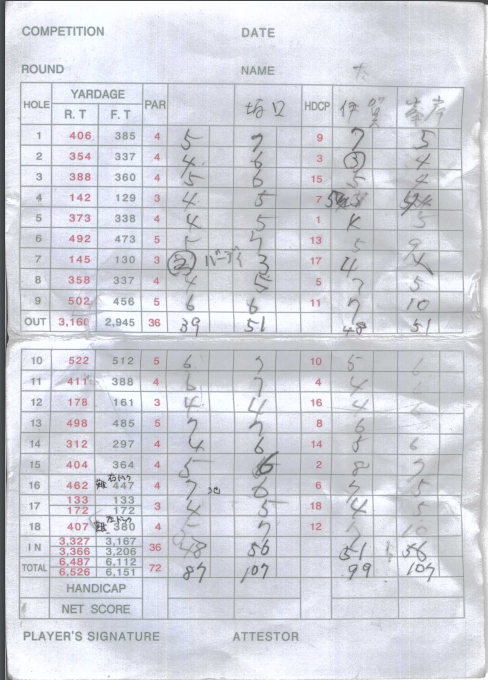 COMPETITION DATE
ROUND NAME
HOLE YARDAGE PAR HDCP
R. T F. T 坂口 伊賀
1 406 385 4 5 7 9 7 5
2 354 337 4 4 6 3 ③ 4
3 388 360 4 5 6 15 5 4
4 142 129 3 4 5 7
5 373 338 4 4 5 1 5
6 492 473 5 5 7 13 5 9
7 145 130 3 ② バーディ 3 17 4 4
8 358 337 4 4 5 5 7 5
9 502 456 5 6 6 11 7 10
OUT 3,160 2,945 36 39 51 48 51
10 522 512 5 6 7 10 5 6
11 411 388 4 6 7 4 4 6
12 178 161 3 4 4 16 4 6
13 498 485 5 7 7 8 6
14 312 297 4 4 6 14 8 6
15 404 364 4 5 6 2 8 7
16 462 447 4 7 6 6 7 5
17 133 133 3 4 5 18 4 5
172 172
18 407 380 4 5 7 12 7 10
IN 3,327 3,167 36 48 56 51 56
3,366 3,206
TOTAL 6,487 6,112 72 87 107 99 107
6,526 6,151
HANDICAP
NET SCORE
PLAYER'S SIGNATURE ATTESTOR